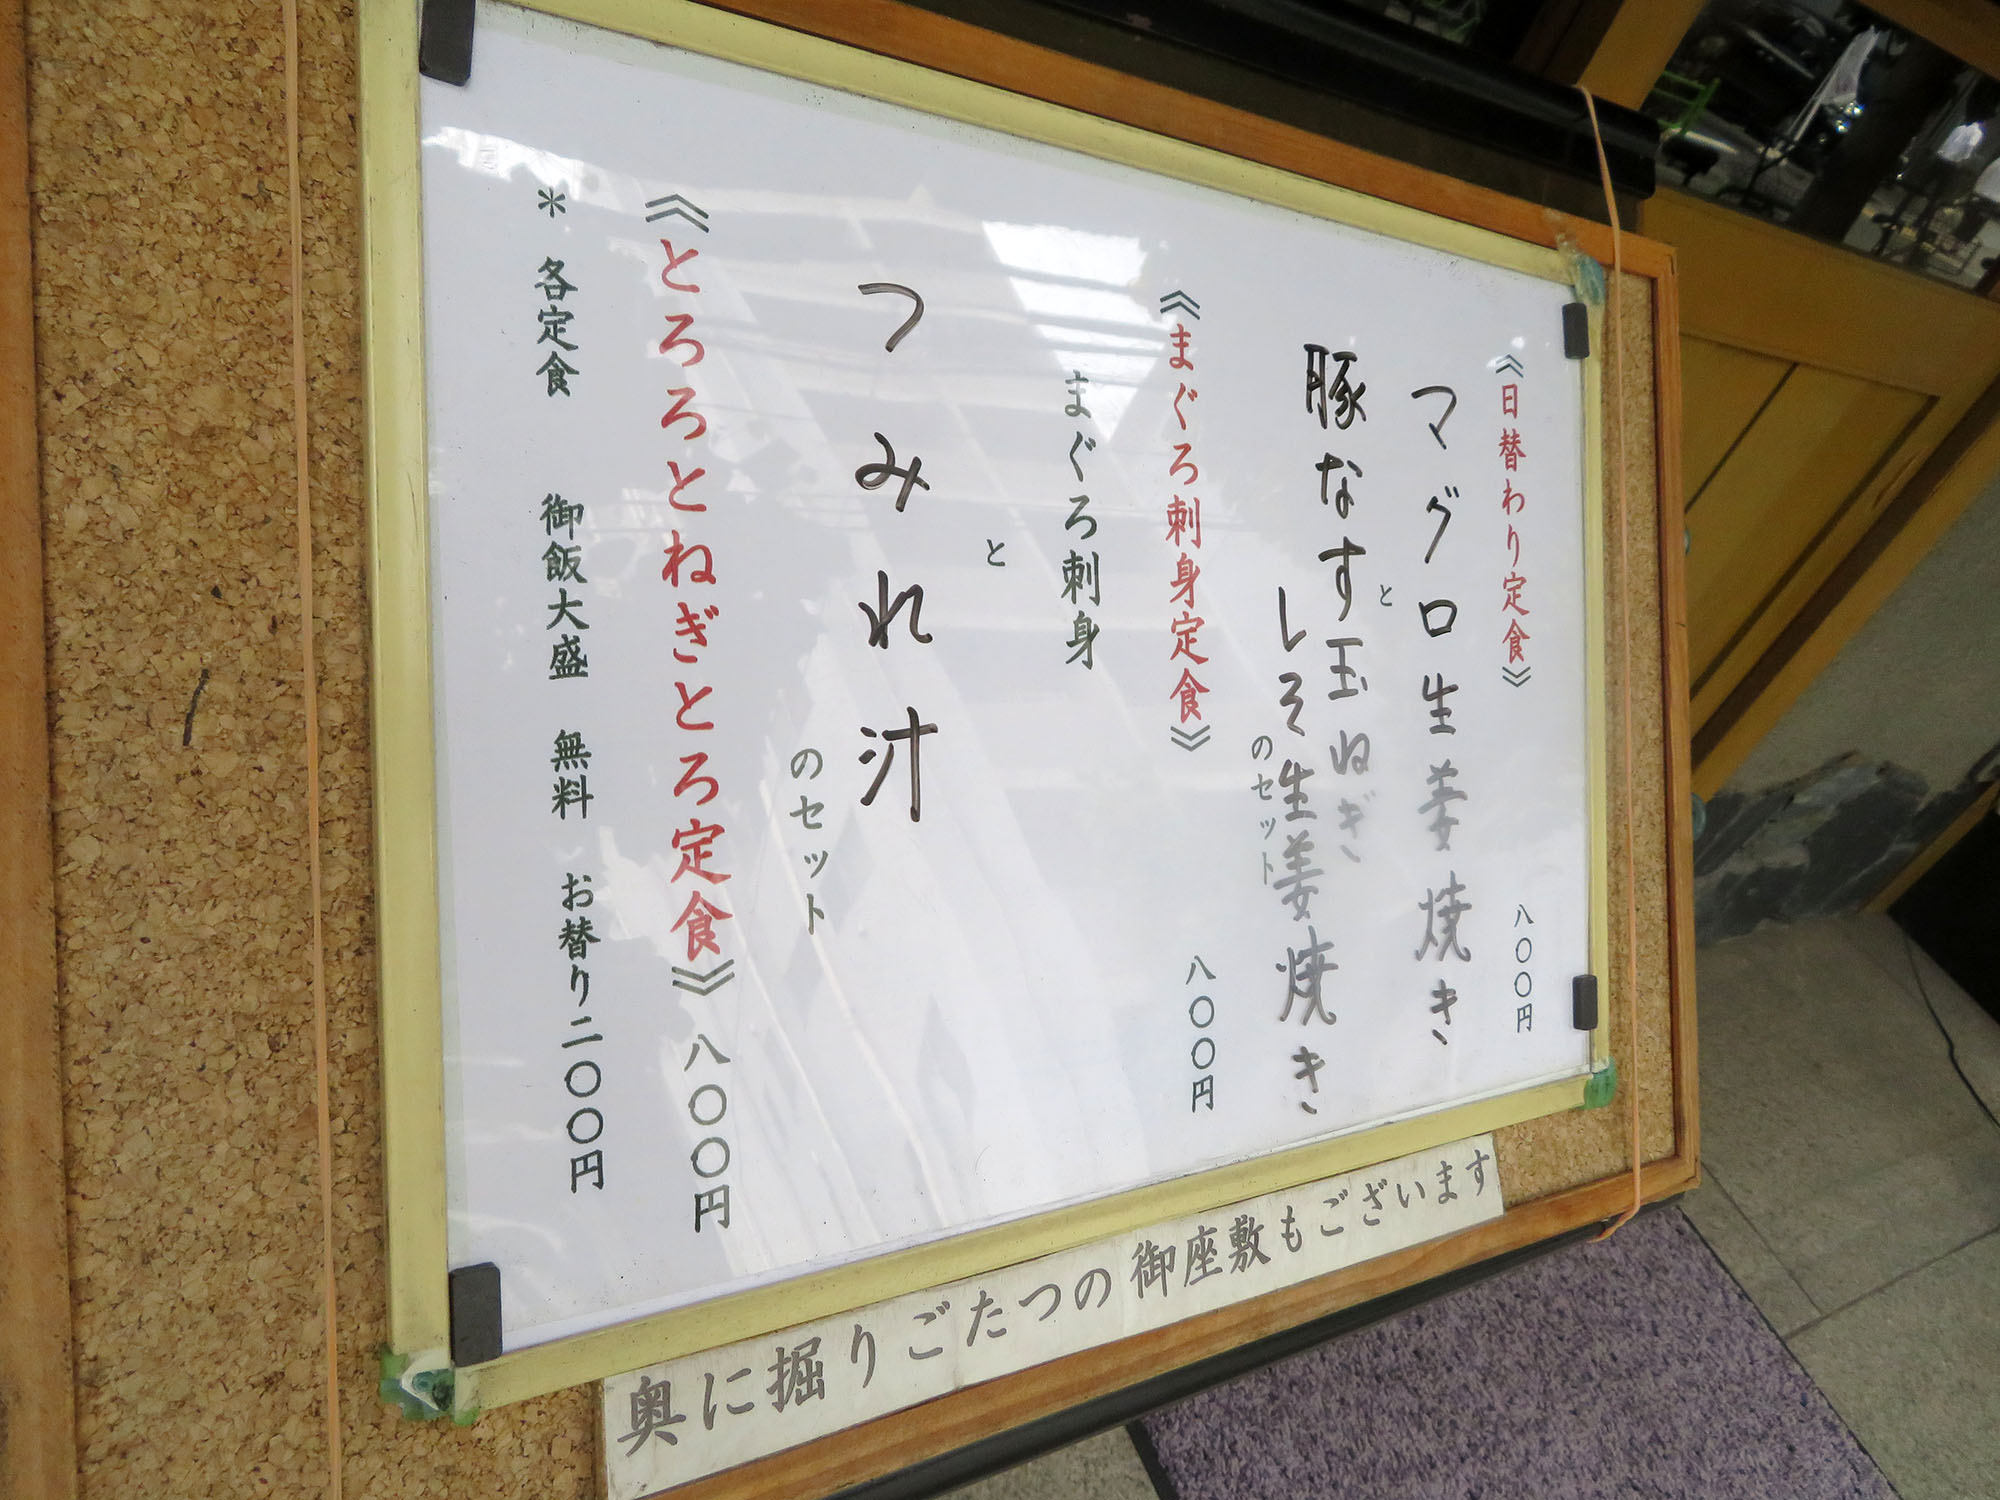 《日替わり定食》 八〇〇円
マグロ生姜焼き
と
豚なす玉ねぎ
しそ生姜焼き
のセット
《まぐろ刺身定食》 八〇〇円
まぐろ刺身
と
つみれ汁
のセット
《とろろとねぎとろ定食》 八〇〇円
＊ 各定食 御飯大盛 無料 お替り二〇〇円
奥に掘りごたつの御座敷もございます